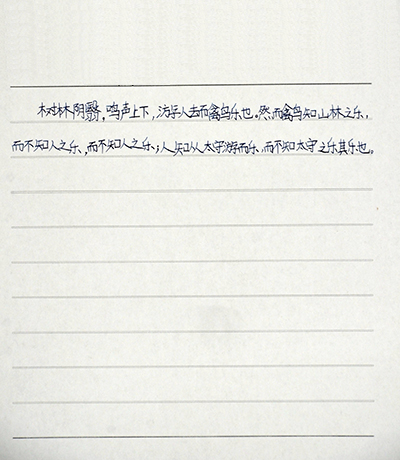 树林阴翳,鸣声上下,游人去而禽鸟乐也。然而禽鸟知山林之乐,
而不知人之乐,而不知人之乐;人知从太守游而乐、而不知太守之乐其乐也。